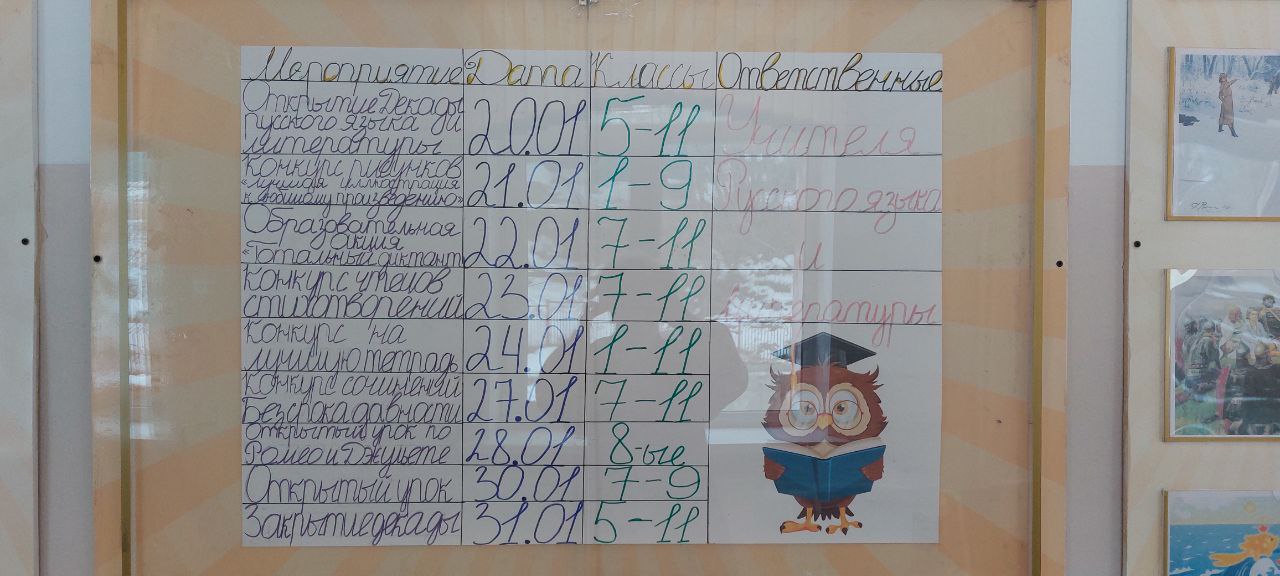 Мероприятие Дата Классы Ответственные
Открытие Декады
русского языка и
литературы
20.01 5-11 Учителя
Конкурс рисунков
«Лучшая иллюстрация
к любимому произведению»
21.01 1-9 Русского языка
Образовательная
акция
«Тотальный диктант
22.01 7-11 и
Конкурс чтецов
стихотворений
23.01 7-11 Литературы
Конкурс на
лучшую тетрадь
24.01 1-11
Конкурс сочинений
Без срока давности
27.01 7-11
Открытый урок по
Ромео и Джульете
28.01 8-ые
Открытый урок 30.01 7-9
Закрытие декады 31.01 5-11